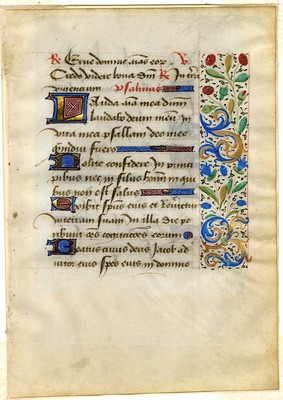 R Erue domine aiaȝ eor V
Credo videre bona dni R In terra
viventium psalmus
Lauda aia mea dnm
laudabo deum meu in
vita mea psallam deo meo
quandiu fuero
Nolite confidere in princi
pibus nec in filiis hominu in qui
bus non est salus
Exibit sps eius et Revertetur
in terram suam in illa die pe
ribunt oes cogitationes eorum
Beatus cuius deus Jacob ad
iutor eius spes eius in domino